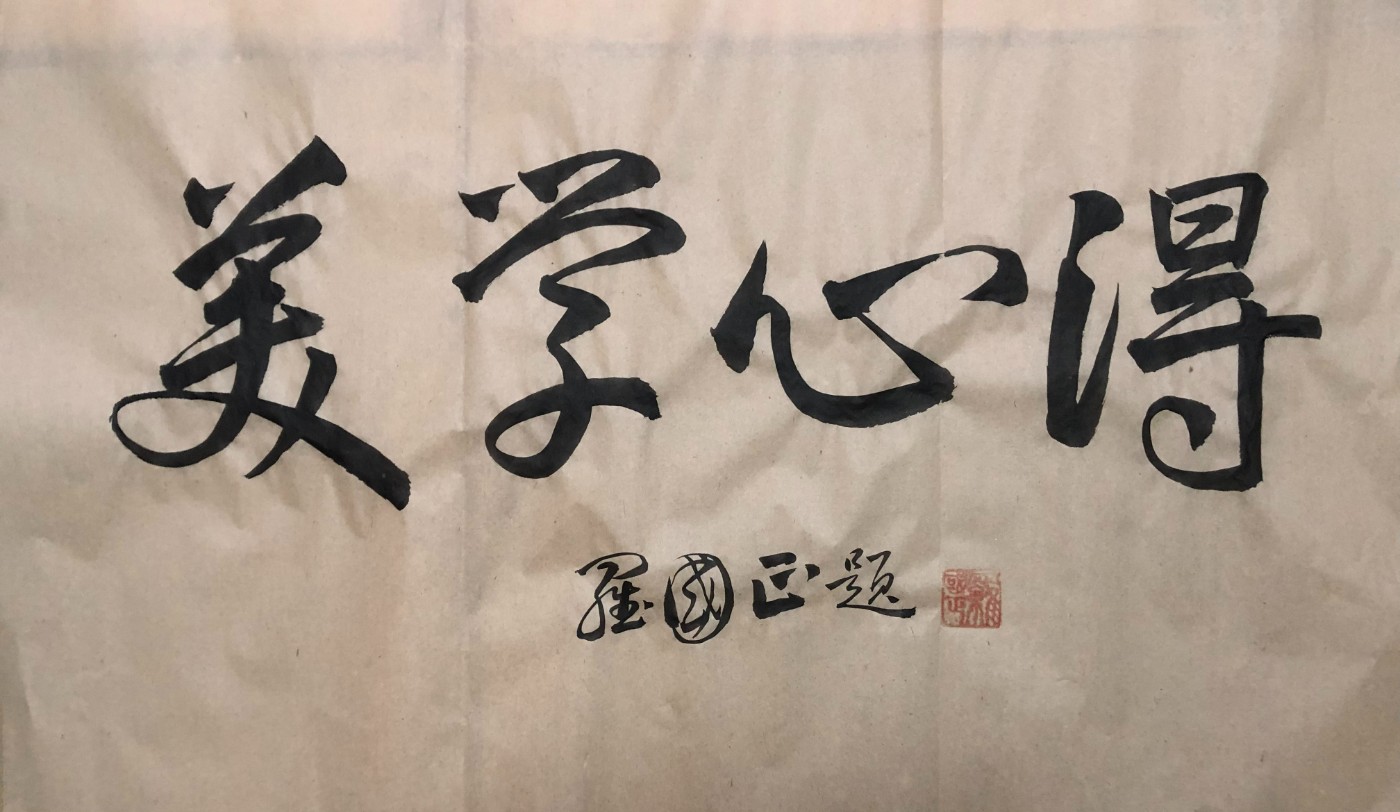 美学心得
羅國正題